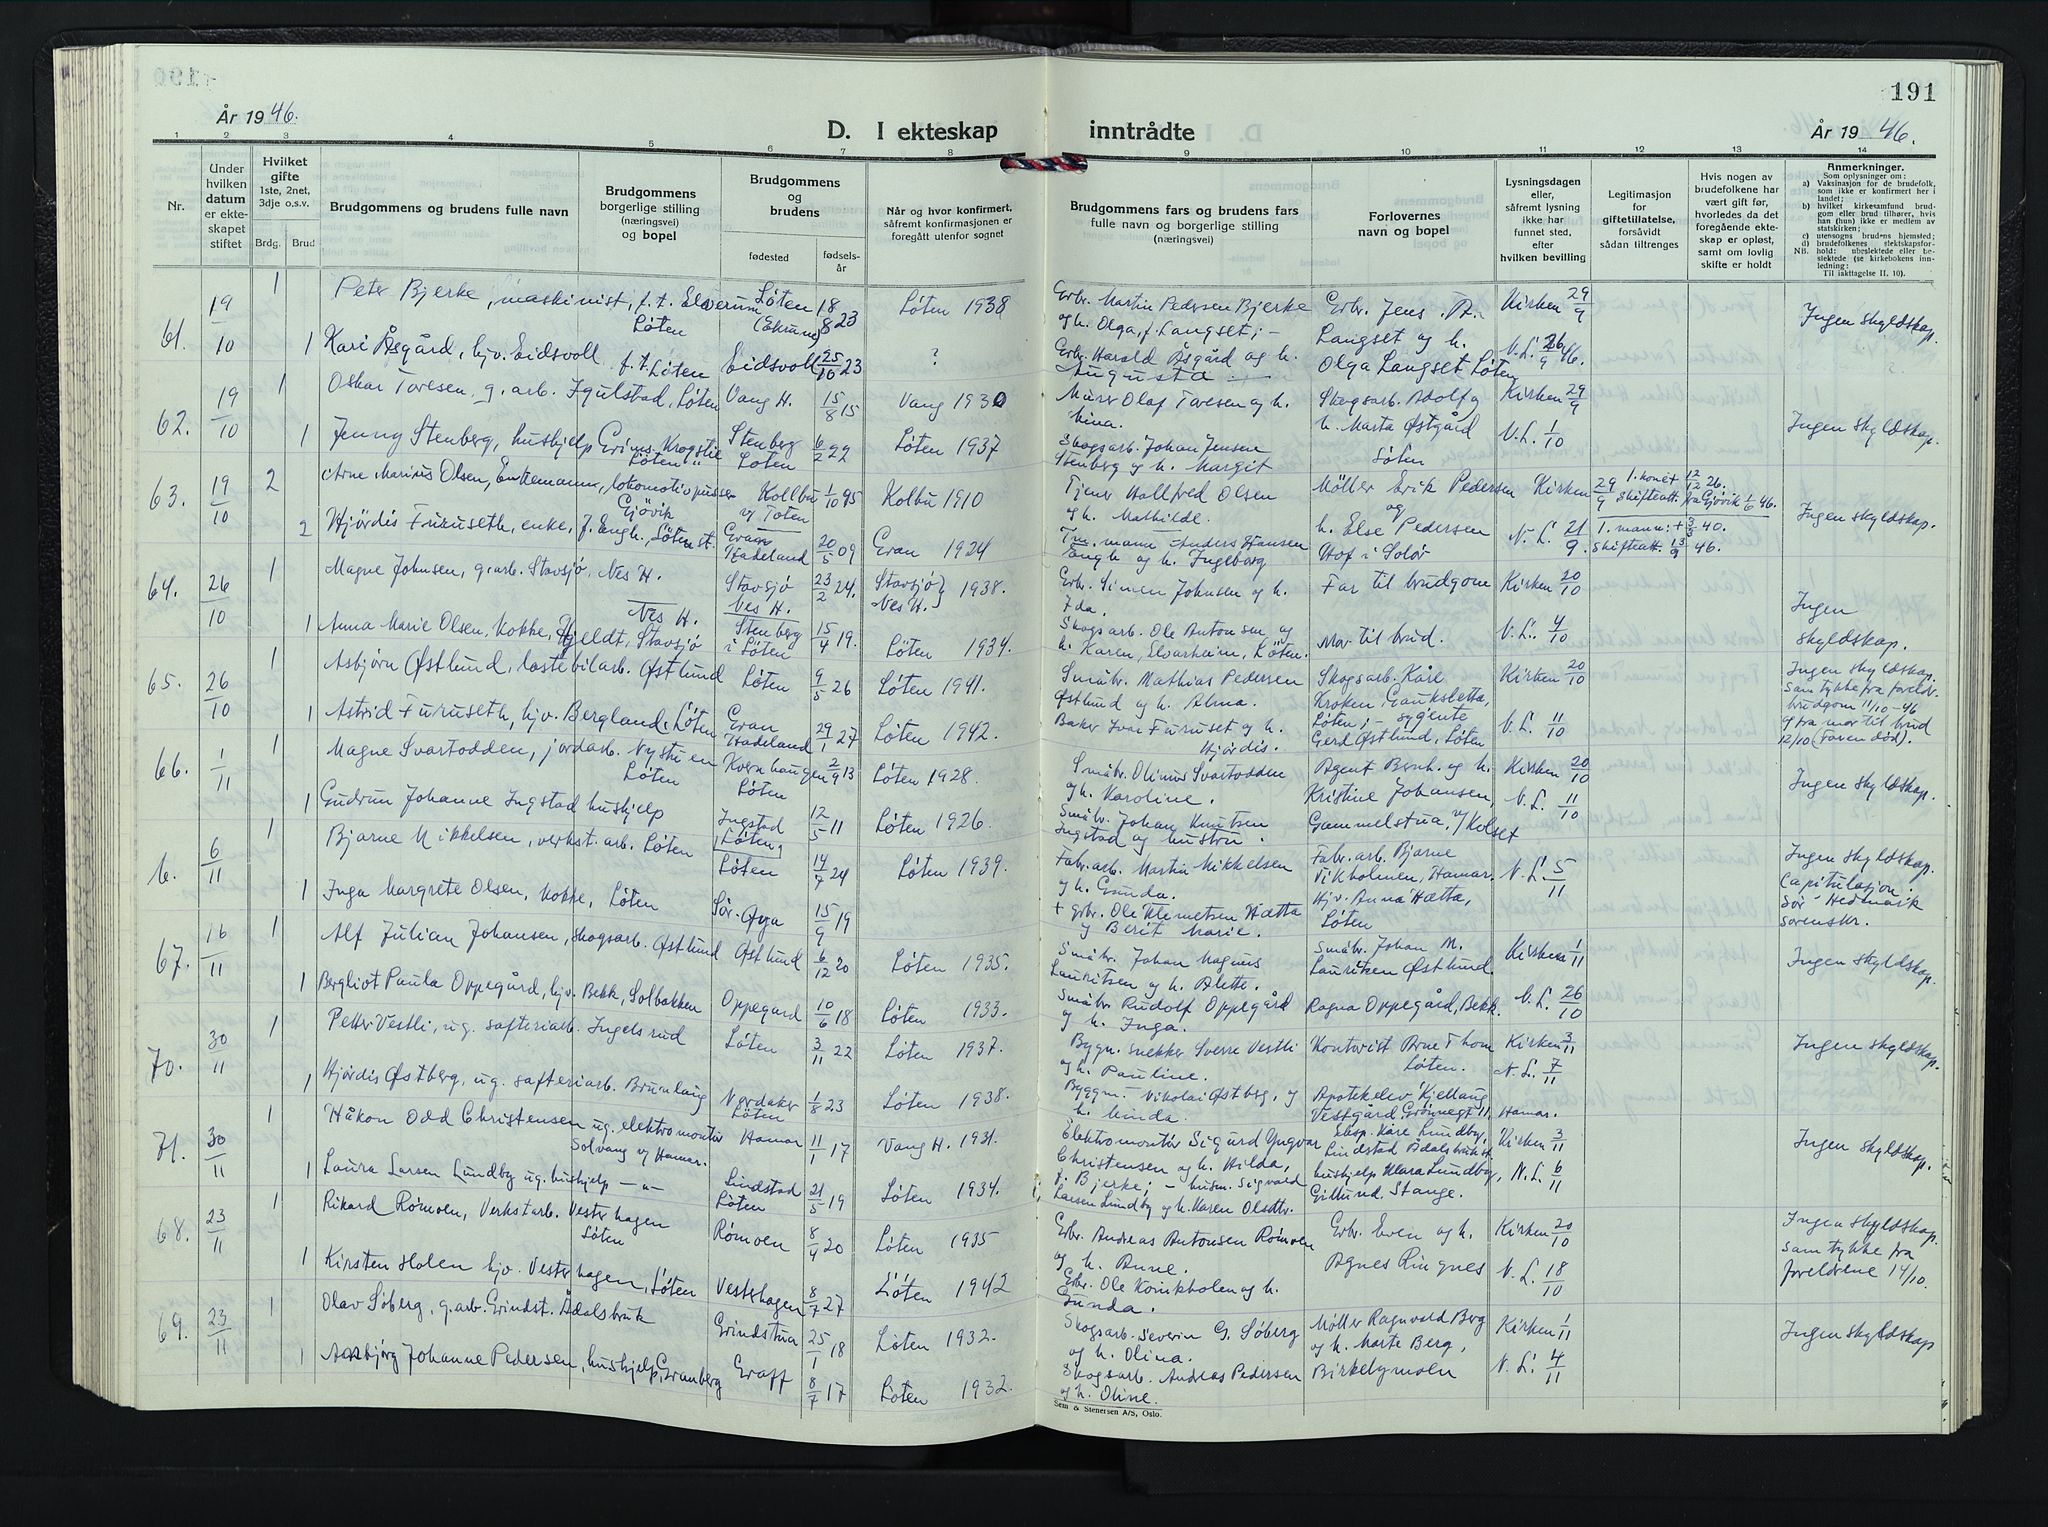 191
År 1946.
D. I ekteskap inntrådte
År 1946.
1 2 3 4 5 6 7 8 9 10 11 12 13 14
Nr.
Under hvilken datum er ekteskapet stiftet
Hvilket gifte 1ste, 2net, 3dje o.s.v.
Brdg. Brud
Brudgommens og brudens fulle navn
Brudgommens borgerlige stilling (næringsvei) og bopel
Brudgommens og brudens
fødested
fødselsår
Når og hvor konfirmert, såfremt konfirmasjonen er foregått utenfor sognet
Brudgommens fars og brudens fars fulle navn og borgerlige stilling (næringsvei)
Forlovernes navn og bopel
Lysningsdagen eller, såfremt lysning ikke har funnet sted, efter hvilken bevilling
Legitimasjon for giftetillatelse, forsåvidt sådan tiltrenges
Hvis nogen av brudefolkene har vært gift før, hvorledes da det foregående ekteskap er opløst, samt om lovlig skifte er holdt
Anmerkninger.
Som oplysning om:
a) Vaksinasjon for de brudefolk, som ikke er konfirmert her i landet;
b) hvilket kirkesamfund brudgom eller brud tilhører, hvis han (hun) ikke er medlem av statskirken;
c) utensogns brudens hjemsted;
d) brudefolkenes slektskapsforhold: ubeslektede eller beslektede (se kirkebokens innledning:
NB. Til iakttagelse II, 10).
61. 19/10 1 Peter Bjerke, maskinist, f.t. Elverum Løten 18/8 23 Løten 1938 Grbr. Martin Pedersen Bjerke Grbr. Jens Kirken 29/9 Ingen skyldskap.
Løten og h. Olga, f. Langset; - Langset og h.
1 Kari Åsgård, hjv. Eidsvoll f.t. Løten Eidsvoll 25/10 23 ? Grbr. Harald Åsgård og h. Olga Langset, Løten N.L. 26/9 46.
Augusta
62. 19/10 1 Oskar Toresen, g.arb. Igulstad, Løten Vang H. 15/8 15 Vang 1930 Murer Olaf Toresen og h. Skogsarb. Adolf og Kirken 29/9 Ingen skyldskap.
Mina. h. Marta Østgård
1 Jenny Stenberg, hushjelp Løten Stenberg Løten 6/2 22 Løten 1937 Skogsarb. Johan Jensen Løten N.L. 1/10
Stenberg og h. Margit
63. 19/10 2 Arne Marius Olsen, Enkemann, lokomotivpusser Gjøvik Kolbu v/ Toten 1/10 95 Kolbu 1910 Tjener Hallfred Olsen Møller Erik Pedersen Kirken 29/9 1. kone † 12/12 26. Skifteatt. fra Gjøvik 1/6 46. Ingen skyldskap.
og h. Mathilde. og
2 Hjørdis Furuseth, enke, f. Engh, Løten st. Gran Hadeland 20/5 09 Gran 1924 Tm. mann Anders Hansen h. Else Pedersen N.L. 21/9. 1. mann: † 3/3 40.
Engh og h. Ingeborg Hof i Solør skifteatt. 13/9 46.
64. 26/10 1 Magne Johnsen, g.arb. Stavsjø, Nes H. Stavsjø Nes H. 23/2 24. Stavsjø Nes H. 1938. Grbr. Simen Johnsen og h. Far til brudgom Kirken 20/10 Ingen skyldskap.
Ida.
1 Anna Marie Olsen, Kokke, Stavsjø Nes H. Stenberg i Løten 15/4 19. Løten 1934. Skogsarb. Ole Antonsen og Mor til brud. N.L. 4/10
h. Karen, Elvarheim, Løten.
65. 26/10 1 Asbjørn Østlund, lastebilarb. Østlund Løten 9/5 26 Løten 1941. Småbr. Mathias Pedersen Skogsarb. Kåre Kirken 20/10 Ingen skyldskap.
Østlund og h. Alma. Kroken, Gauksletta, Samtykke fra foreldr.
1 Astrid Furuseth, hjv. Bergland, Løten Gran Hadeland 29/1 27 Løten 1942. Baker Ivar Furuset og h. Løten; - N.L. 11/10 brudgom 11/10-46
Hjørdis. Gerd Østlund, Løten og fra mor til brud 12/10 (Faren død).
66. 1/11 1 Magne Svartodden, jordarb. Nystuen Løten Kvernhaugen Løten 2/9 13 Løten 1928 Småbr. Olinius Svartodden Agent Bernh. og h. Kirken 20/10 Ingen skyldskap.
og h. Karoline. Kristine Johansen,
1 Gudrun Johanne Ingstad hushjelp Ingstad Løten 12/5 11 Løten 1926. Småbr. Johan Knutsen Gammelstua, v/ N.L. 11/10
Ingstad og hustru.
6. 6/11 1 Bjarne Mikkelsen, verkst. arb. Løten Løten 14/7 24 Løten 1939. Fabr.arb. Martin Mikkelsen Fabr.arb. Bjarne N.L. 5/11 Ingen skyldskap.
og h. Gunda. Vikholmen, Hamar. Capitulasjon.
1 Inga Margrete Olsen, Kokke, Løten Sør-Øya 15/9 19 † grbr. Ole Klemetsen Hætta Hjv. Anna Hætta, Sør-Hedmark
og Berit Marie. Løten sorenskr.
67. 16/11 1 Alf Julian Johansen, skogsarb. Østlund Østlund 6/12 20 Løten 1935. Småbr. Johan Magnus Småbr. Johan M. Kirken 1/11 Ingen skyldskap.
Lauritsen og h. Alette. Lauritsen Østlund.
1 Bergliot Paula Oppegård, hjv. Bekk, Solbakken Oppegård 10/6 18 Løten 1933. Småbr. Rudolf Oppegård Ragna Oppegård, Bekk. N.L. 26/10
og h. Inga.
70. 30/11 1 Petter Vestli, ug. safteriarb. Ingelsrud Løten 3/11 22 Løten 1937. Bygn. snekker Sverre Vestli Kontorist Arne Thom Kirken 3/11 Ingen skyldskap.
og h. Pauline. Løten.
1 Hjørdis Østberg, ug. safteriarb. Brunhaug Nordaker Løten 1/8 23 Løten 1938. Byggm. Nikolai Østberg, og Apotekelev Kjellaug N.L. 7/11
h. Minda. Vestgård, Grønnegt 11, Hamar.
71. 30/11 1 Håkon Odd Christensen ug. elektromontør Solvang v/ Hamar. Hamar 11/1 17 Vang H. 1931. Elektromontør Sigurd Yngvar Eksp. Kåre Lundby, Kirken 3/11 Ingen skyldskap.
Christensen og h. Hilda, Lindstad Ådalsbruk st.
1 Laura Larsen Lundby ug. hushjelp — " — Lindstad Løten 21/5 19 Løten 1934. f. Bjerke; - husm. Sigvald hushjelp Klara Lundby, N.L. 6/11
Larsen Lundby og h. Karen Olsdtr. Gillund, Stange.
68. 23/11 1 Rikard Rømoen, Verkstarb. Vesterhagen Løten Rømoen 8/4 20 Løten 1935 Grbr. Andreas Antonsen Rømoen Grbr. Even og h. Kirken 20/10 Ingen skyldskap.
og h. Anne. Agnes Ringnes Samtykke fra
1 Kirsten Holen hjv. Vesterhagen, Løten Vesterhagen 8/7 27 Løten 1942 Grbr. Ole Kornkholen og h. N.L. 18/10 foreldrene 14/10.
Gunda.
69. 23/11 1 Olav Søberg, g.arb. Grindst. Ådalsbruk Grindstua 25/1 18 Løten 1932. Skogsarb. Severin G. Søberg Møller Ragnvald Berg Kirken 1/11 Ingen skyldskap
og h. Olina. og h. Marte Berg,
1 Annbjørg Johanne Pedersen, hushjelp, Granberg Graff 8/7 17 Løten 1932. Skogsarb. Andreas Pedersen Birkebymoen N.L. 4/11
og h. Oline.
Sem & Stenersen A/S, Oslo.